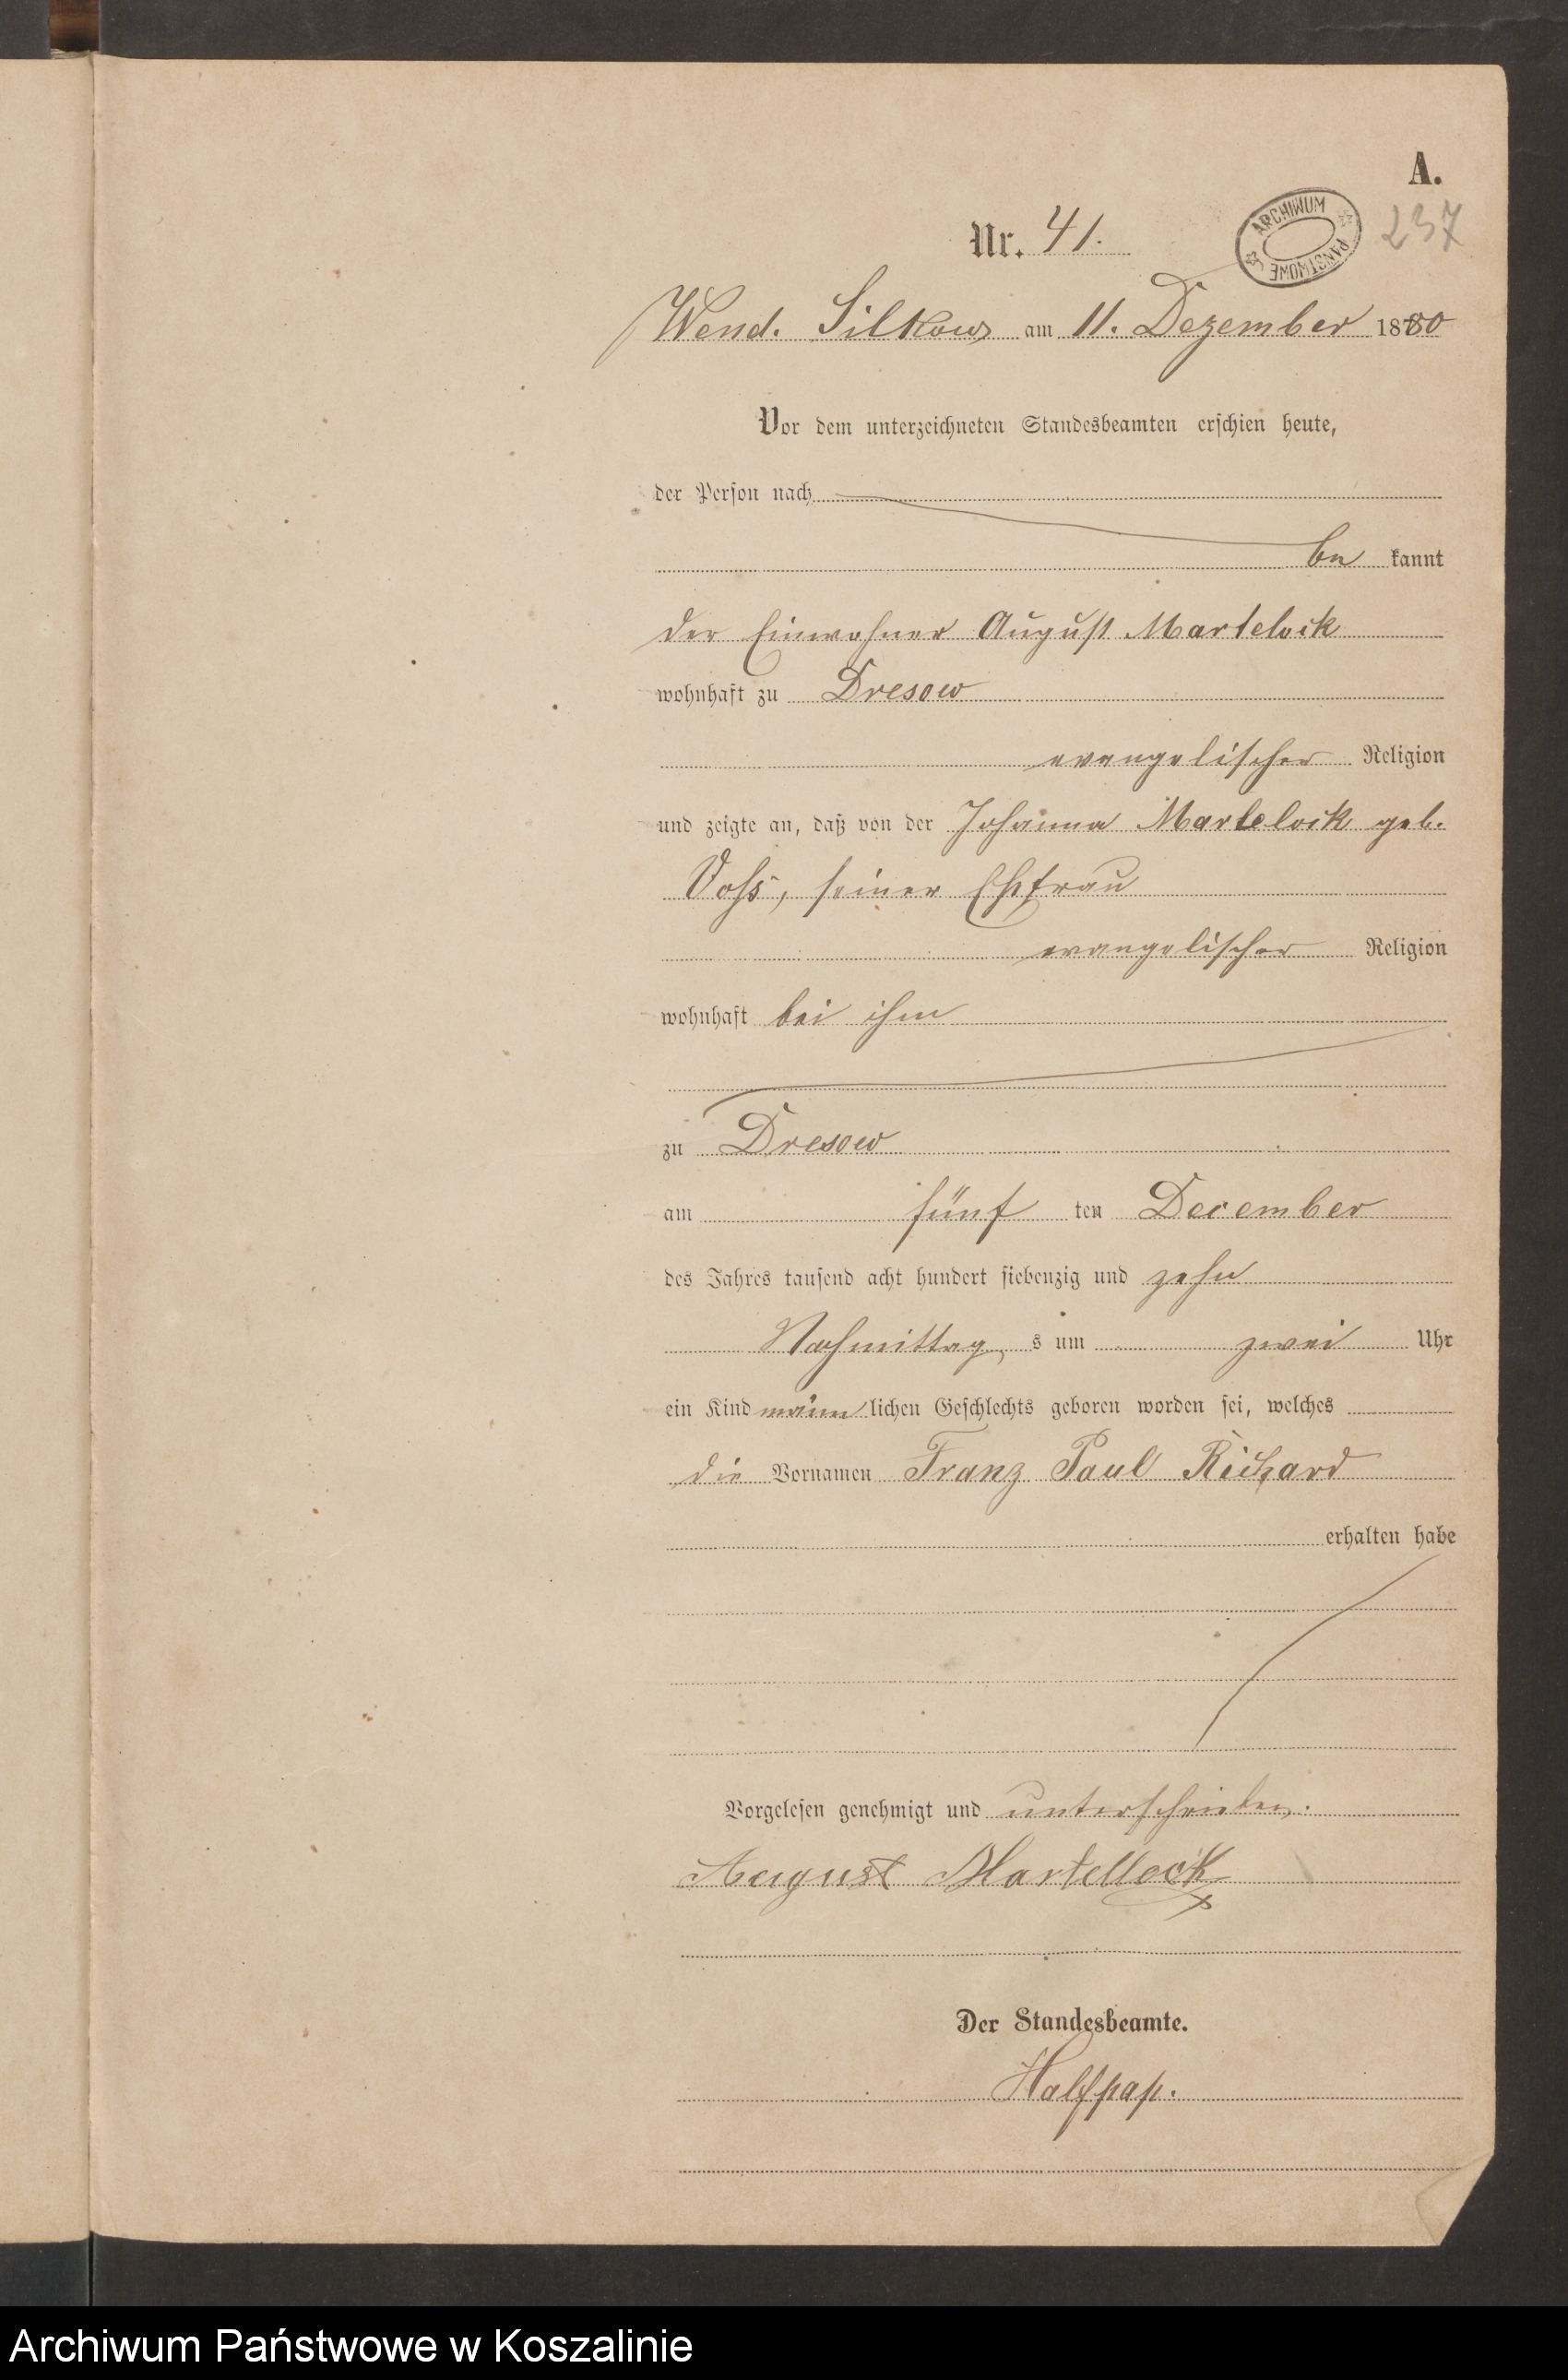 A.
Nr. 41.
ARCHIWUM PAŃSTWOWE
237
Wend. Silkow am 11. Dezember 1880
Vor dem unterzeichneten Standesbeamten erschien heute,
der Person nach
be kannt
der Einwohner August Martelock
wohnhaft zu Dresow
evangelischer Religion
und zeigte an, daß von der Johanna Martelock geb.
Voss, seiner Ehefrau
evangelischer Religion
wohnhaft bei ihm
zu Dresow
am fünf ten December
des Jahres tausend acht hundert siebenzig und zehn
Nachmittag s um zwei Uhr
ein Kind männ lichen Geschlechts geboren worden sei, welches
die Vornamen Franz Paul Richard
erhalten habe
Vorgelesen genehmigt und unterschrieben.
August Martellock
Der Standesbeamte.
Halfpap.
Archiwum Państwowe w Koszalinie